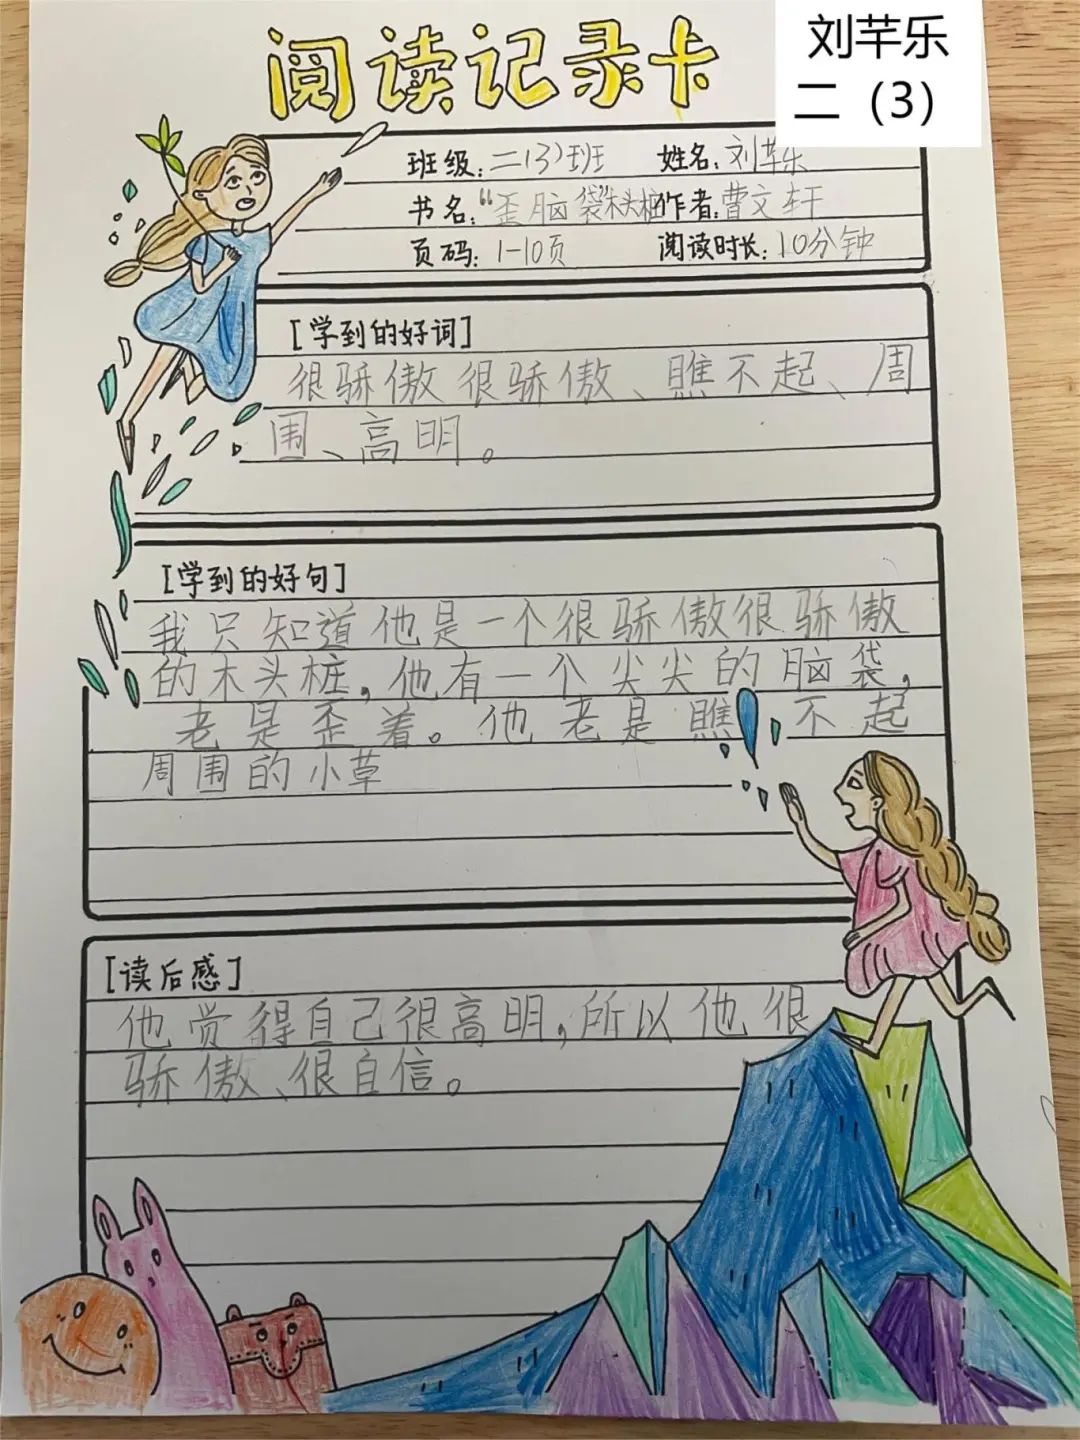 刘芊乐
二（3）
阅读记录卡
班级：二(3)班 姓名：刘芊乐
书名：“歪脑袋”木头桩 作者：曹文轩
页码：1-10页 阅读时长：10分钟
[学到的好词]
很骄傲很骄傲、瞧不起、周
围、高明。
[学到的好句]
我只知道他是一个很骄傲很骄傲
的木头桩，他有一个尖尖的脑袋，
老是歪着。他老是瞧不起
周围的小草
[读后感]
他觉得自己很高明，所以他很
骄傲、很自信。